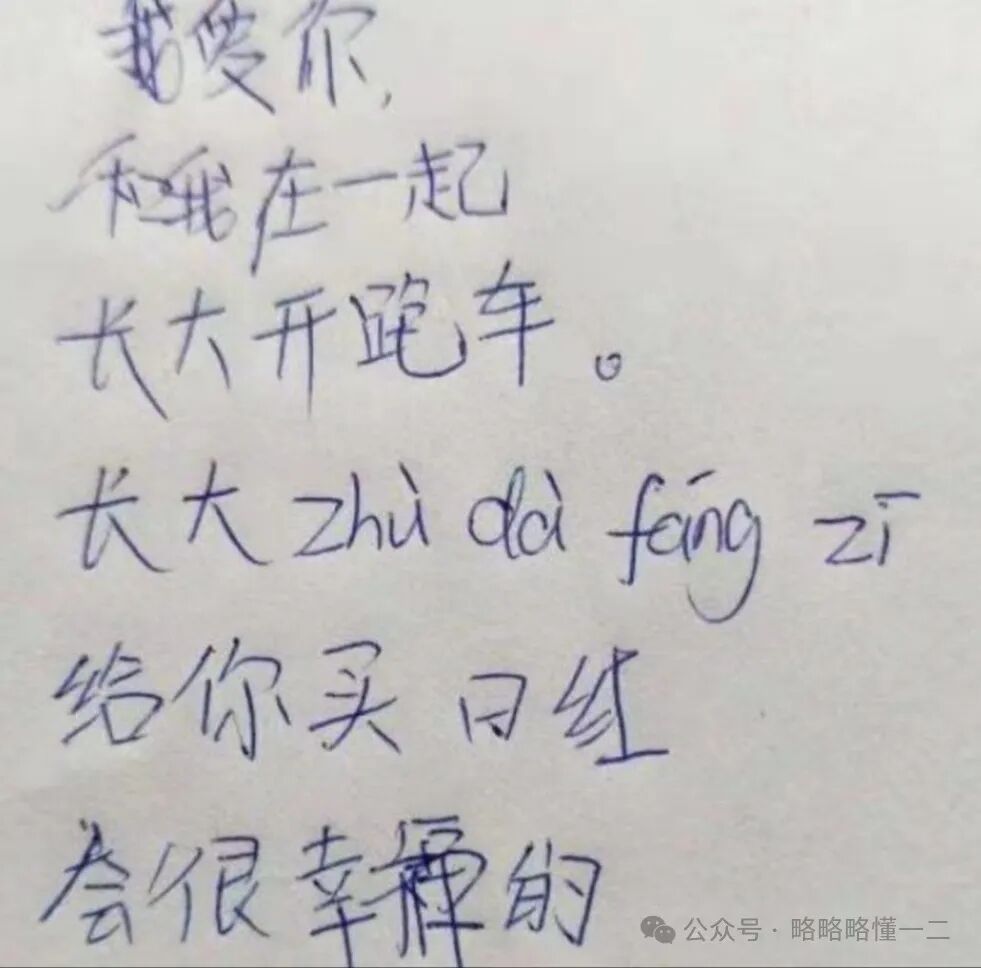 我爱你,
和我在一起
长大开跑车。
长大zhù dà fáng zī
给你买日红
会很幸福的
公众号·略略略懂一二